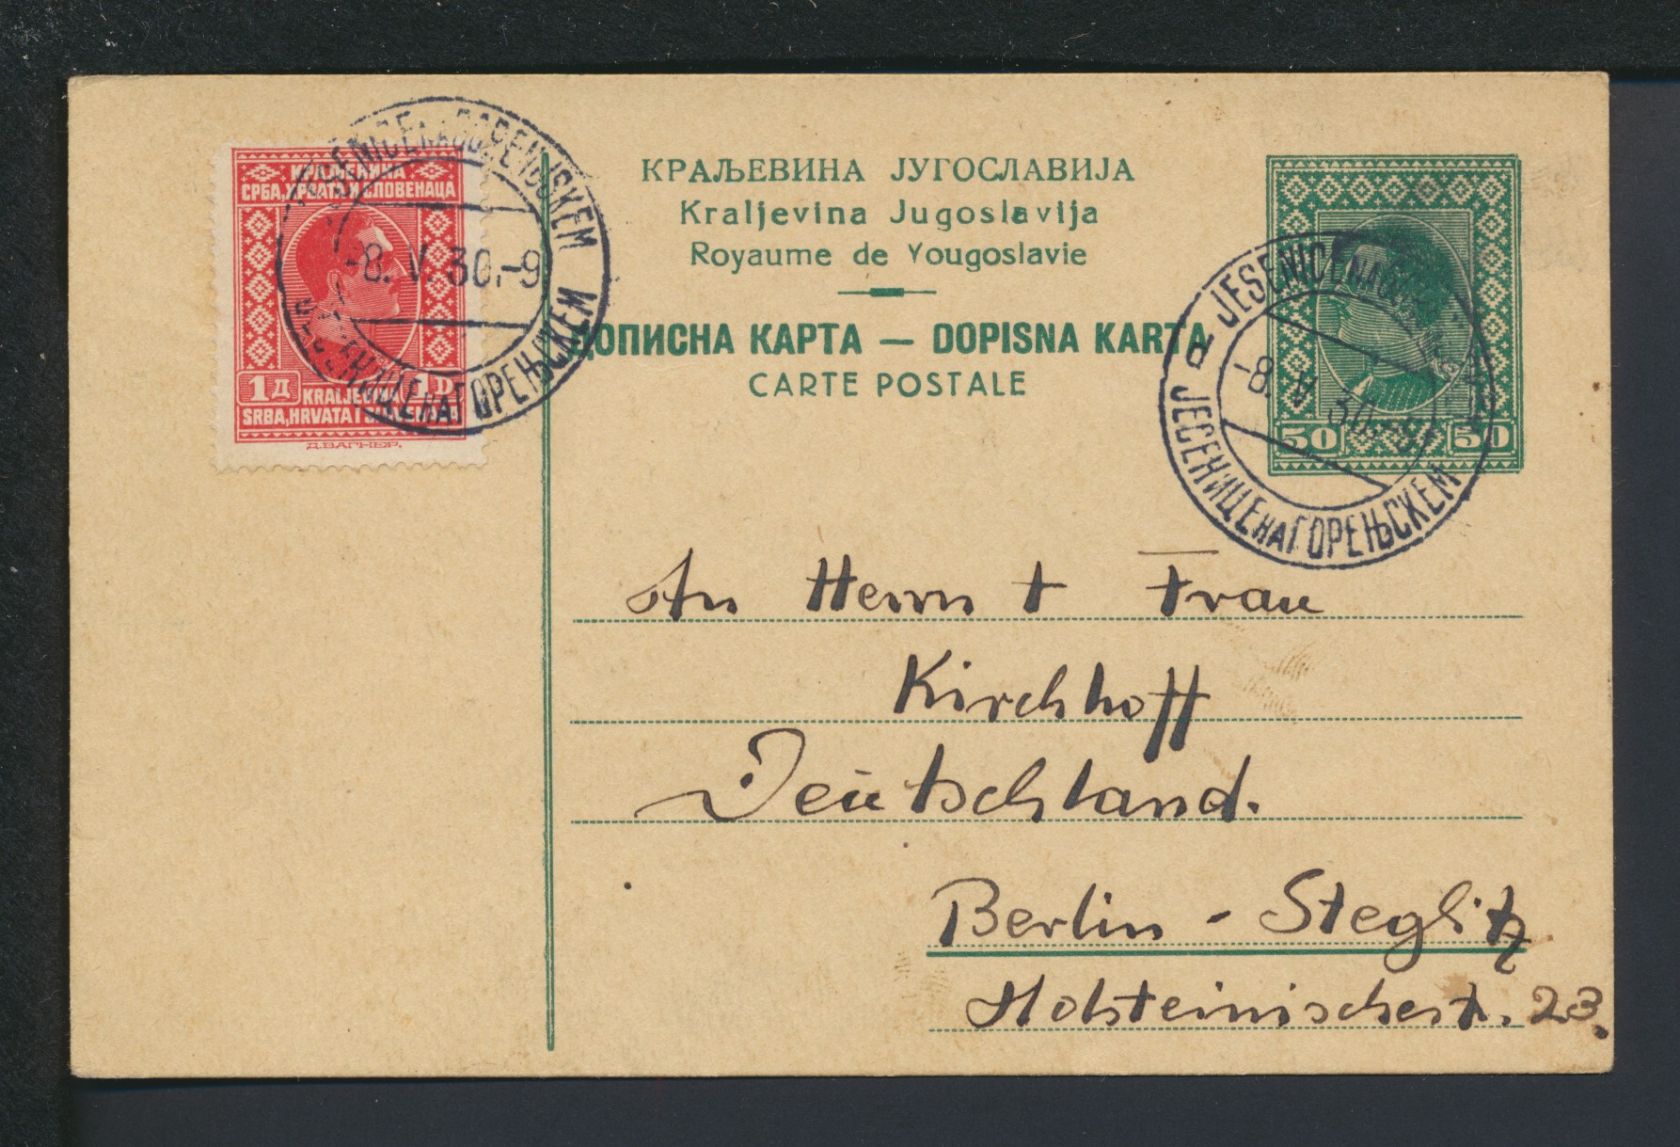 КРАЉЕВИНА
СРБА, ХРВАТА И СЛОВЕНАЦА
1Д
1D
KRALJEVINA
SRBA, HRVATA I
Д.ВАГНЕР.
JESENICE NA GORENJSKEM
-8. V 30.-9
ЈЕСЕНИЦЕ НА ГОРЕЊСКЕМ
КРАЉЕВИНА ЈУГОСЛАВИЈА
Kraljevina Jugoslavija
Royaume de Yougoslavie
ДОПИСНА КАРТА — DOPISNA KARTA
CARTE POSTALE
50 50
d JESENICE NA GORENJSKEM
-8. V 30.-9
ЈЕСЕНИЦЕ НА ГОРЕЊСКЕМ
An Herrn + Frau
Kirchhoff
Deutschland.
Berlin - Steglitz
Holsteinischestr. 23.